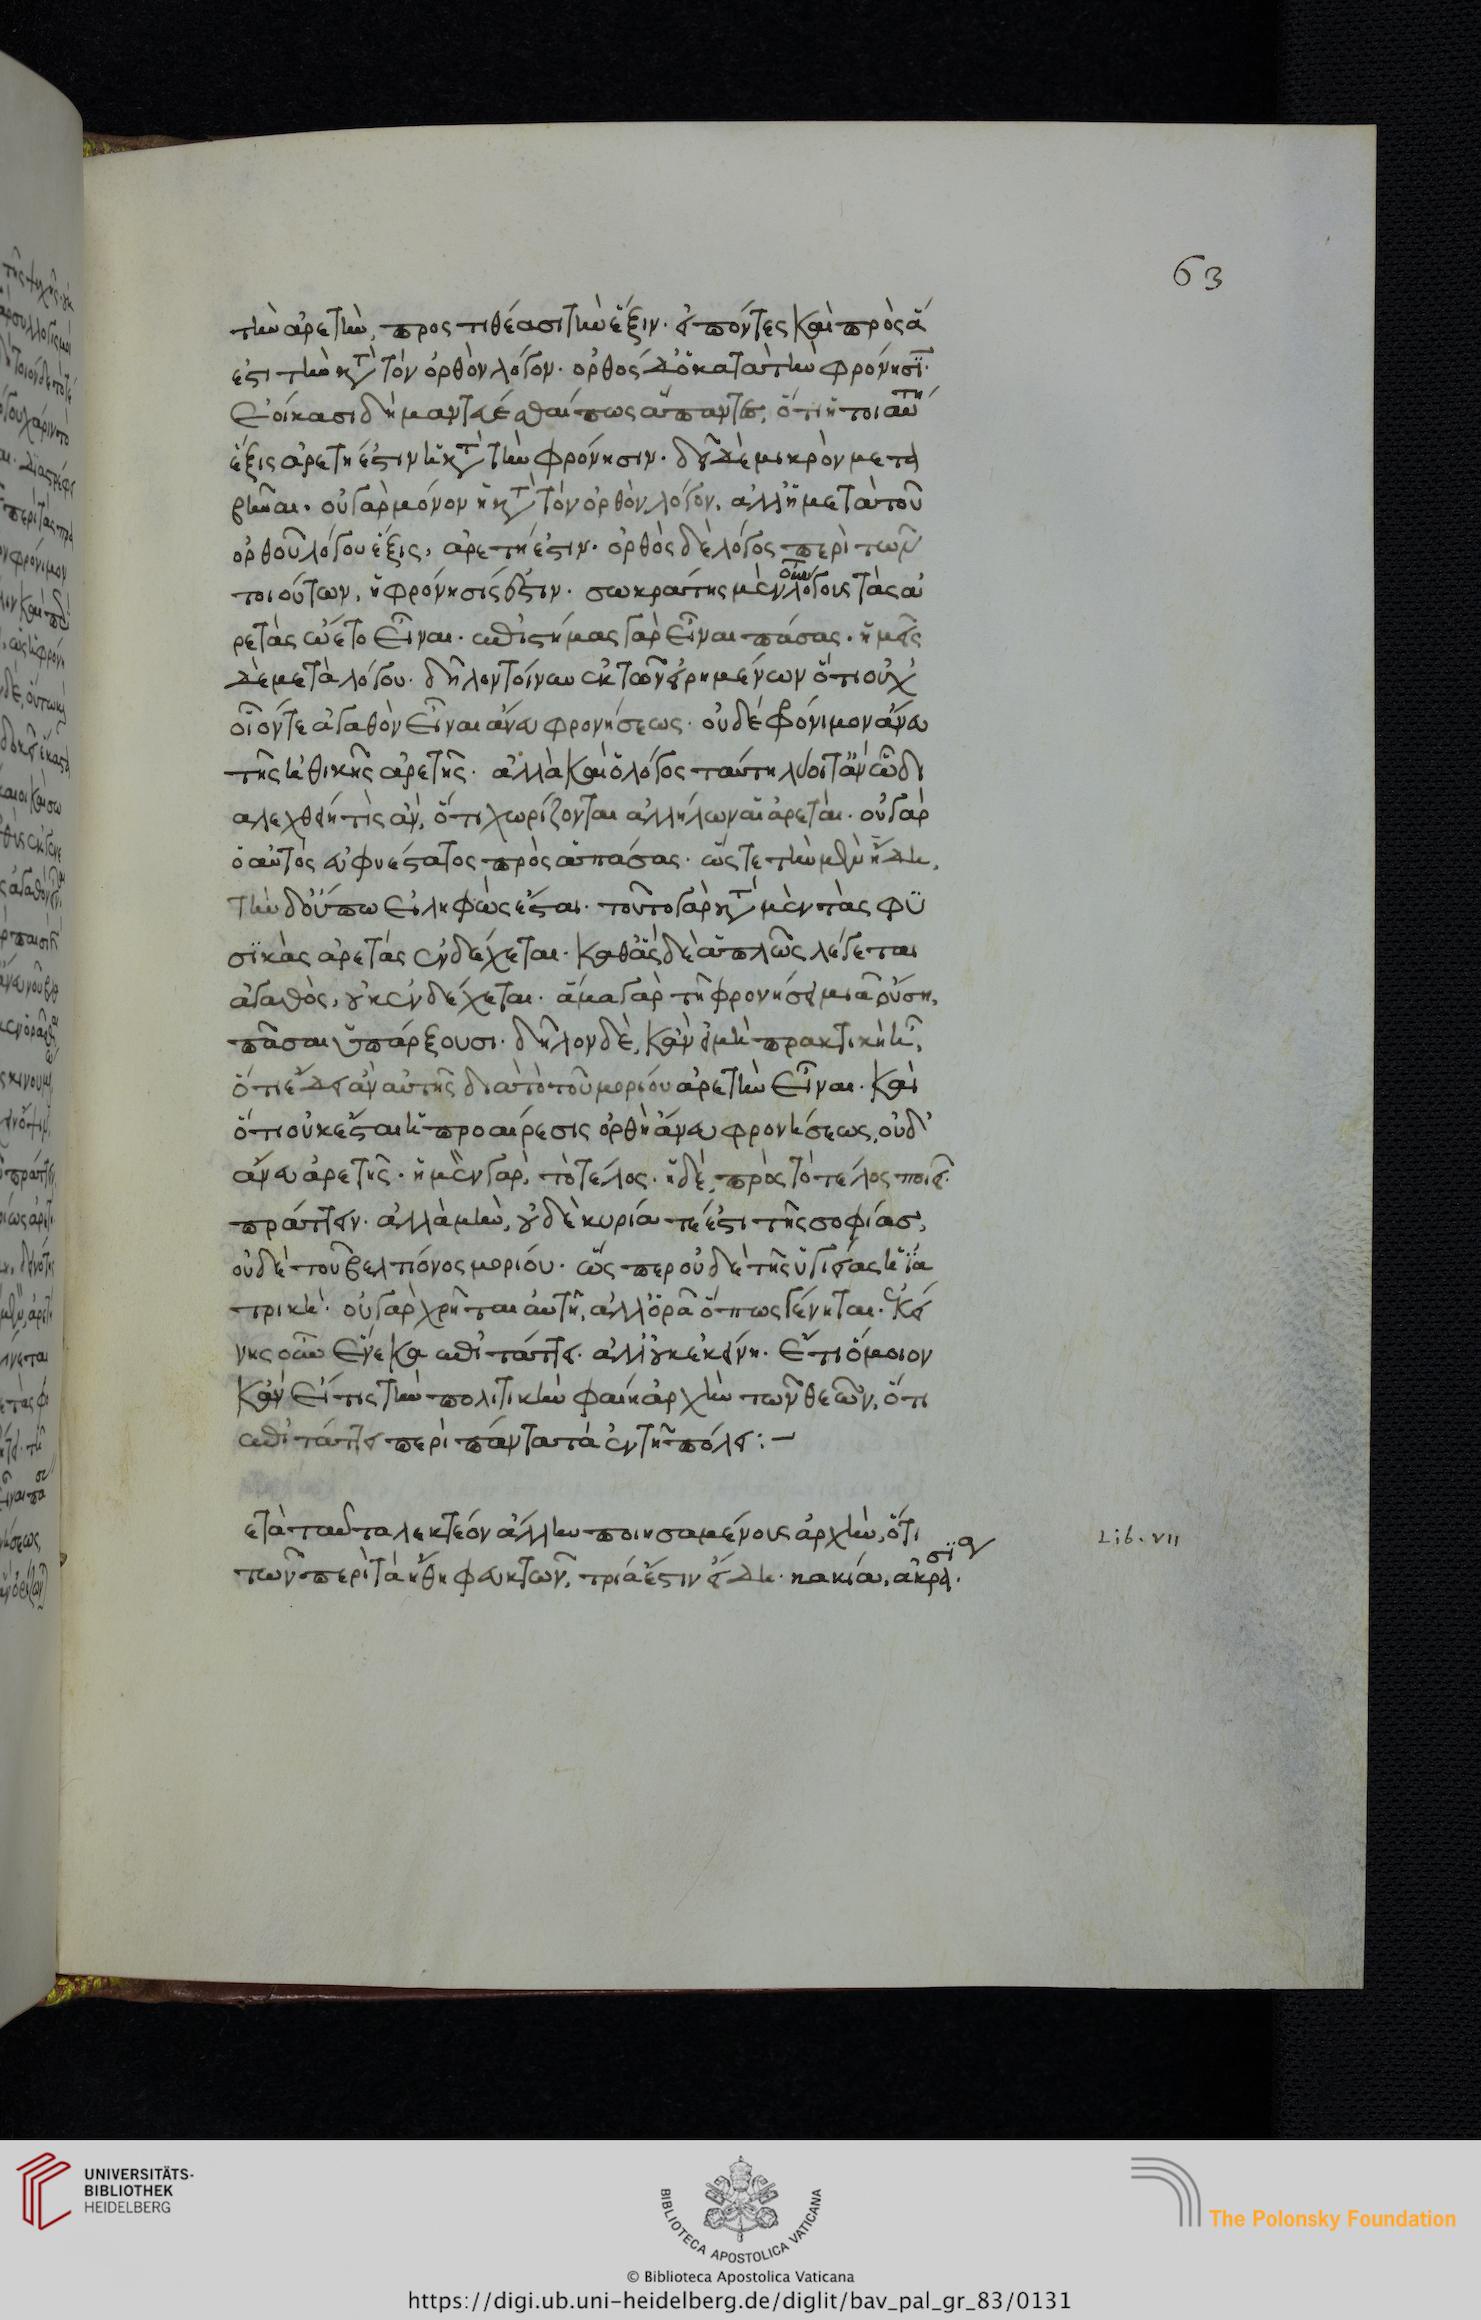 63
τὴν ἀρετὴν, προς τιθέασι τὴν ἕξιν. εἰπόντες καὶ πρὸς ἅ
ἐστι τὴν κατὰ τὸν ὀρθὸν λόγον. ὀρθὸς δ' ὁ κατὰ τὴν φρόνησιν.
Ἐοίκασι δὴ μαντεύεσθαί πως ἅπαντες, ὅτι ἡ τοιαύτη
ἕξις ἀρετή ἐστιν ἡ κατὰ τὴν φρόνησιν. δεῖ δὲ μικρὸν μετα
βῆναι. οὐ γὰρ μόνον ἡ κατὰ τὸν ὀρθὸν λόγον, ἀλλ' ἡ μετὰ τοῦ
ὀρθοῦ λόγου ἕξις, ἀρετή ἐστιν. ὀρθὸς δὲ λόγος περὶ τῶν
τοιούτων, ἡ φρόνησίς ἐστιν. σωκράτης μὲν οὖν λόγους τὰς ἀ
ρετὰς ᾤετο εἶναι. ἐπιστήμας γὰρ εἶναι πάσας. ἡμεῖς
δὲ μετὰ λόγου. δῆλον τοίνυν ἐκ τῶν εἰρημένων ὅτι οὐχ
οἷόν τε ἀγαθὸν εἶναι ἄνευ φρονήσεως. οὐδὲ φρόνιμον ἄνευ
τῆς ἠθικῆς ἀρετῆς. ἀλλὰ καὶ ὁ λόγος ταύτῃ λύοιτ' ἂν ᾧ δι
αλεχθείη τὶς ἂν, ὅτι χωρίζονται ἀλλήλων αἱ ἀρεταί. οὐ γὰρ
ὁ αὐτὸς εὐφυέστατος πρὸς ἁπάσας. ὥστε τὴν μὲν ἤδη,
τὴν δ' οὔπω εἰληφὼς ἔσται. τοῦτο γὰρ κατὰ μὲν τὰς φυ
σικὰς ἀρετάς ἐνδέχεται. καθ' ἃς δὲ ἁπλῶς λέγεται
ἀγαθὸς, οὐκ ἐνδέχεται. ἅμα γὰρ τῇ φρονήσει μιᾷ οὔσῃ,
πᾶσαι ὑπάρξουσι. δῆλον δὲ, κἂν εἰ μὴ πρακτικὴ ἦ,
ὅτι ἔδει ἂν αὐτῆς διὰ τὸ τοῦ μορίου ἀρετὴν εἶναι. καὶ
ὅτι οὐκ ἔσται ἡ προαίρεσις ὀρθὴ ἄνευ φρονήσεως, οὐδ'
ἄνευ ἀρετῆς. ἡ μὲν γὰρ, τὸ τέλος. ἡ δὲ, πρὸς τὸ τέλος ποιεῖ
πράττειν. ἀλλὰ μὴν, οὐδὲ κυρία τέ ἐστι τῆς σοφίας,
οὐδὲ τοῦ βελτίονος μορίου. ὥσπερ οὐδὲ τῆς ὑγιείας ἡ ἰα
τρική. οὐ γὰρ χρῆται αὐτῇ, ἀλλ' ὁρᾷ ὅπως γένηται. ἐκεί
νης οὖν ἕνεκα ἐπιτάττει. ἀλλ' οὐκ ἐκείνῃ. ἔτι ὅμοιον
κἂν εἴ τις τὴν πολιτικὴν φαίη ἄρχειν τῶν θεῶν, ὅτι
ἐπιτάττει περὶ πάντα τὰ ἐν τῇ πόλει:—
ετὰ ταῦτα λεκτέον ἄλλην ποιησαμένους ἀρχὴν, ὅτι
τῶν περὶ τὰ ἤθη φευκτῶν, τρία ἐστιν εἴδη. κακία, ἀκρασία.
Lib. VII
UNIVERSITÄTS-
BIBLIOTHEK
HEIDELBERG
BIBLIOTECA APOSTOLICA VATICANA
The Polonsky Foundation
© Biblioteca Apostolica Vaticana
https://digi.ub.uni-heidelberg.de/diglit/bav_pal_gr_83/0131